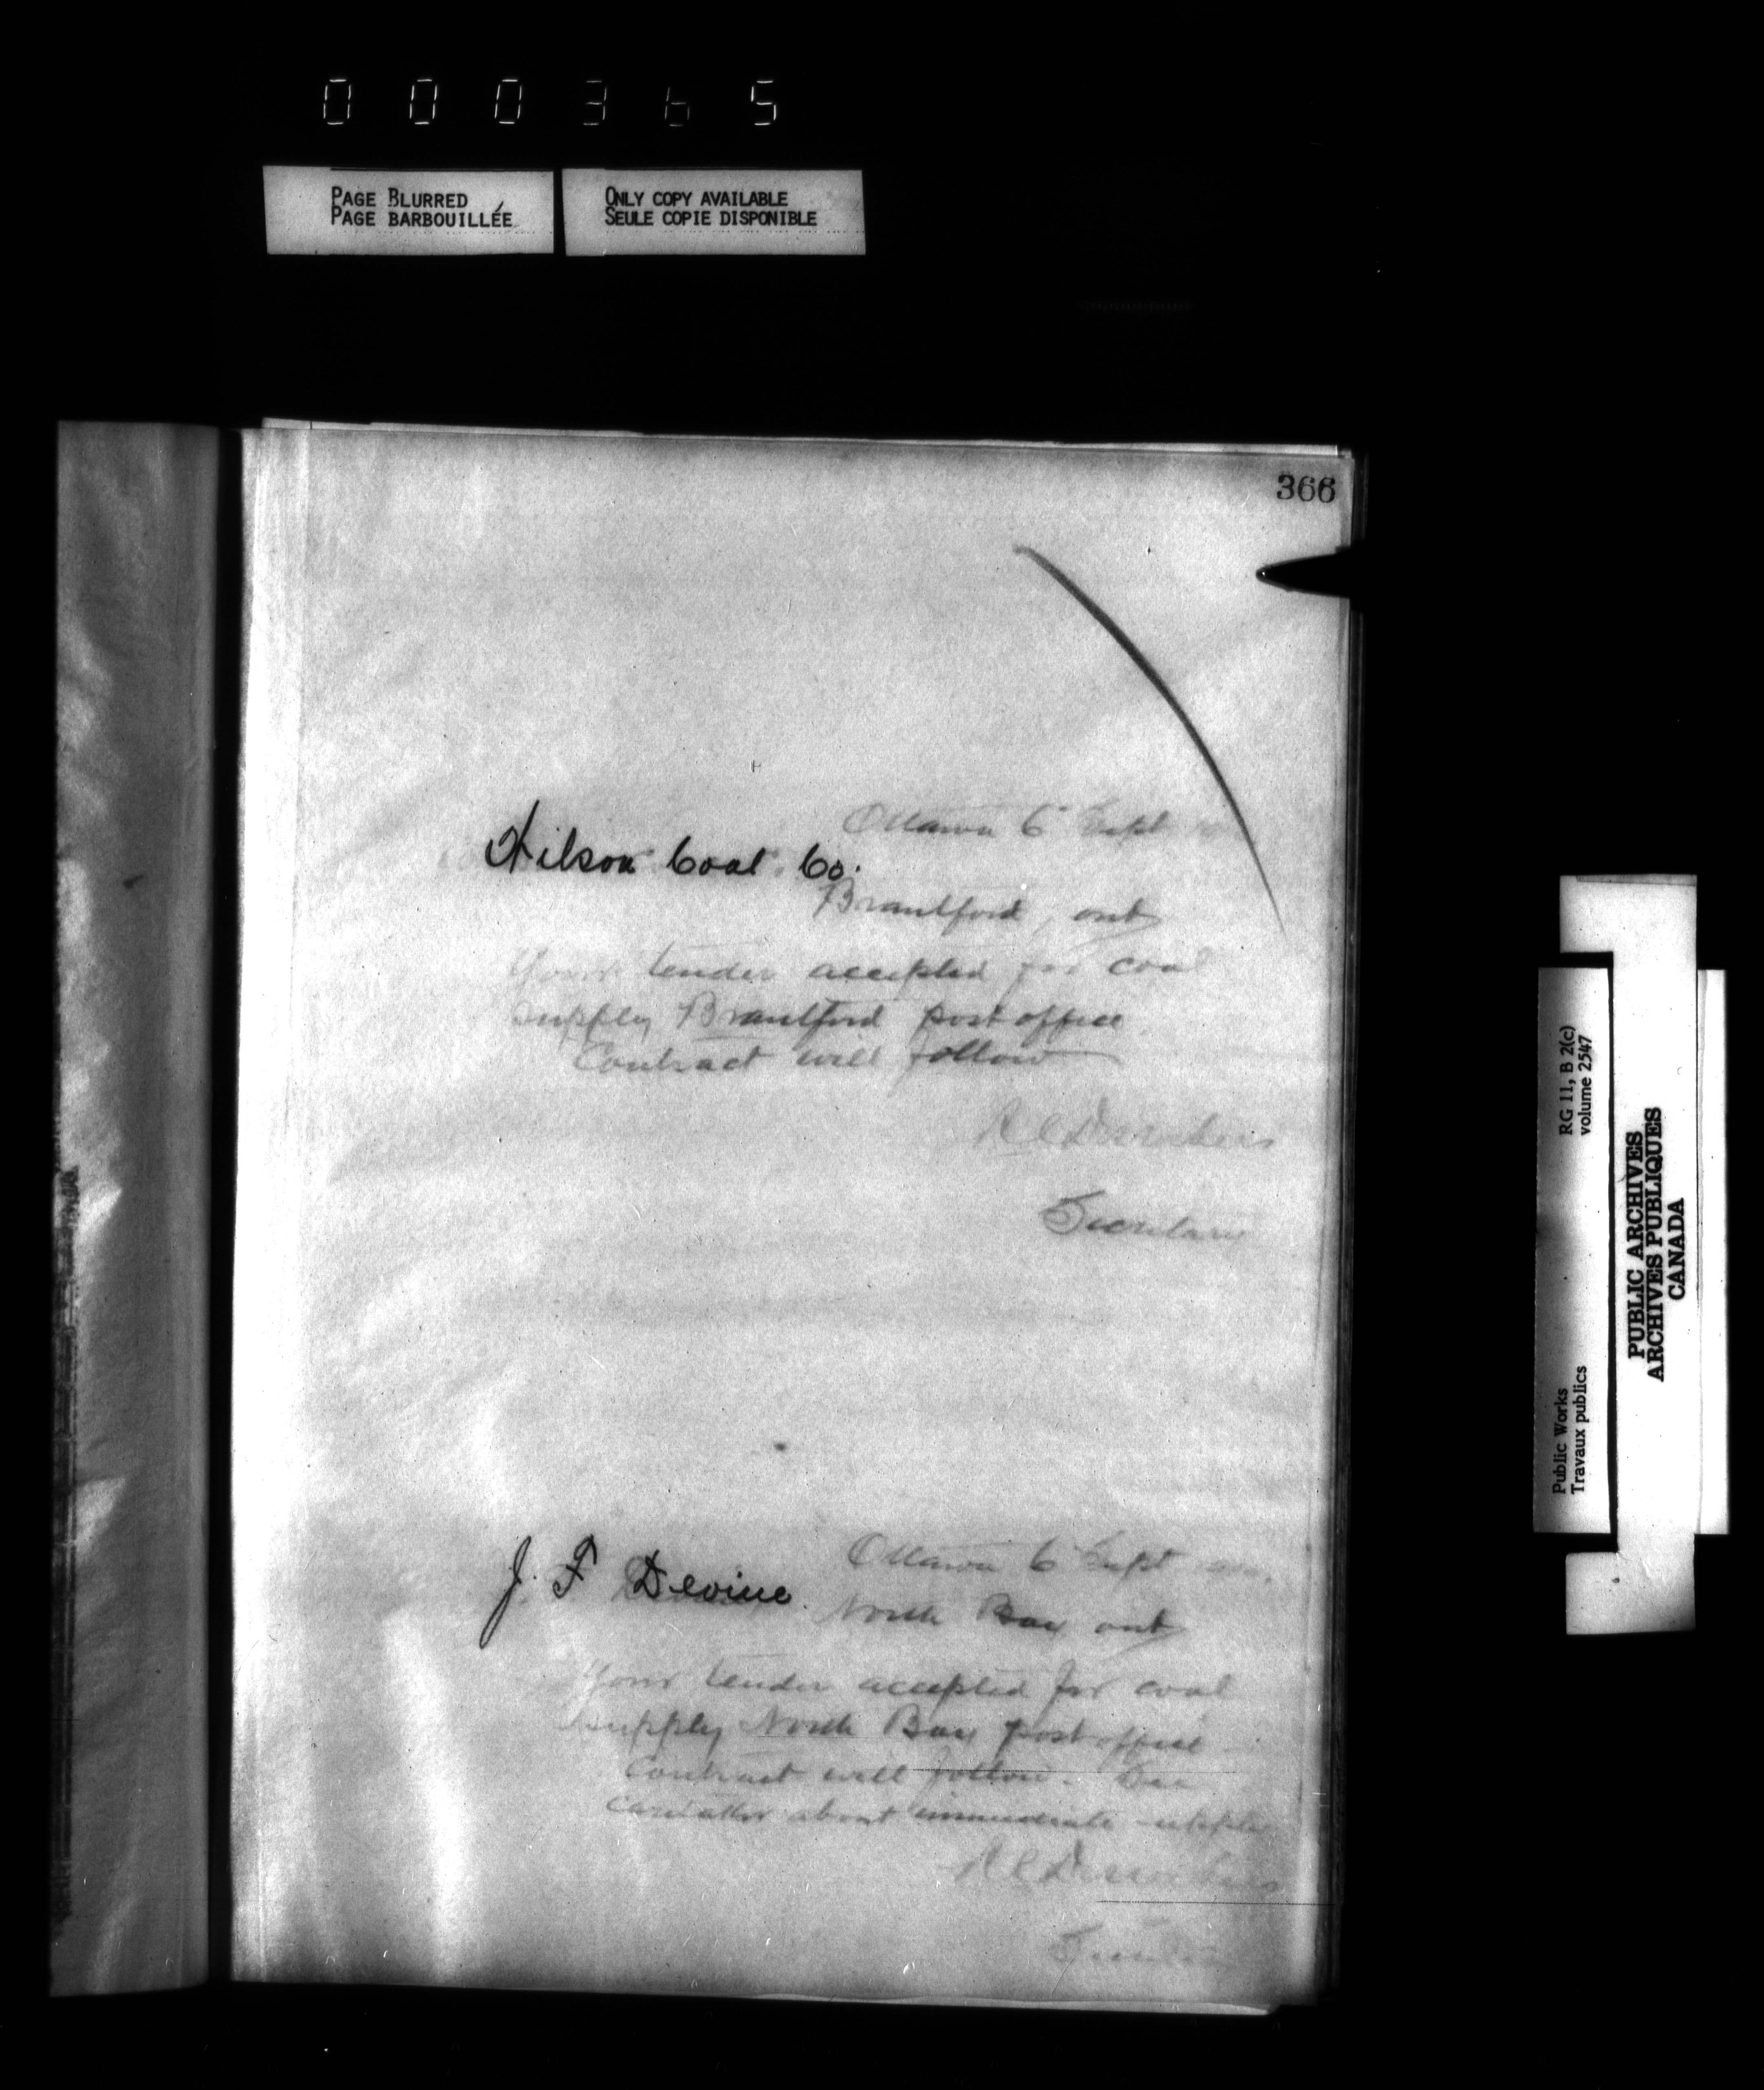 000365
PAGE BLURRED
PAGE BARBOUILLÉE
ONLY COPY AVAILABLE
SEULE COPIE DISPONIBLE
366
Ottawa 6 Sept
Wilson Coal Co.
Brantford, ont
Your tender accepted for coal
supply Brantford post office
Contract will follow
R C Desrochers
Secretary
Ottawa 6 Sept
J. F Devine.
North Bay ont
Your tender accepted for coal
supply North Bay post office
Contract will follow. See
caretaker about immediate supply
R C Desrochers
Secretary
RG 11, B 2(c)
volume 2547
Public Works
Travaux publics
PUBLIC ARCHIVES
ARCHIVES PUBLIQUES
CANADA